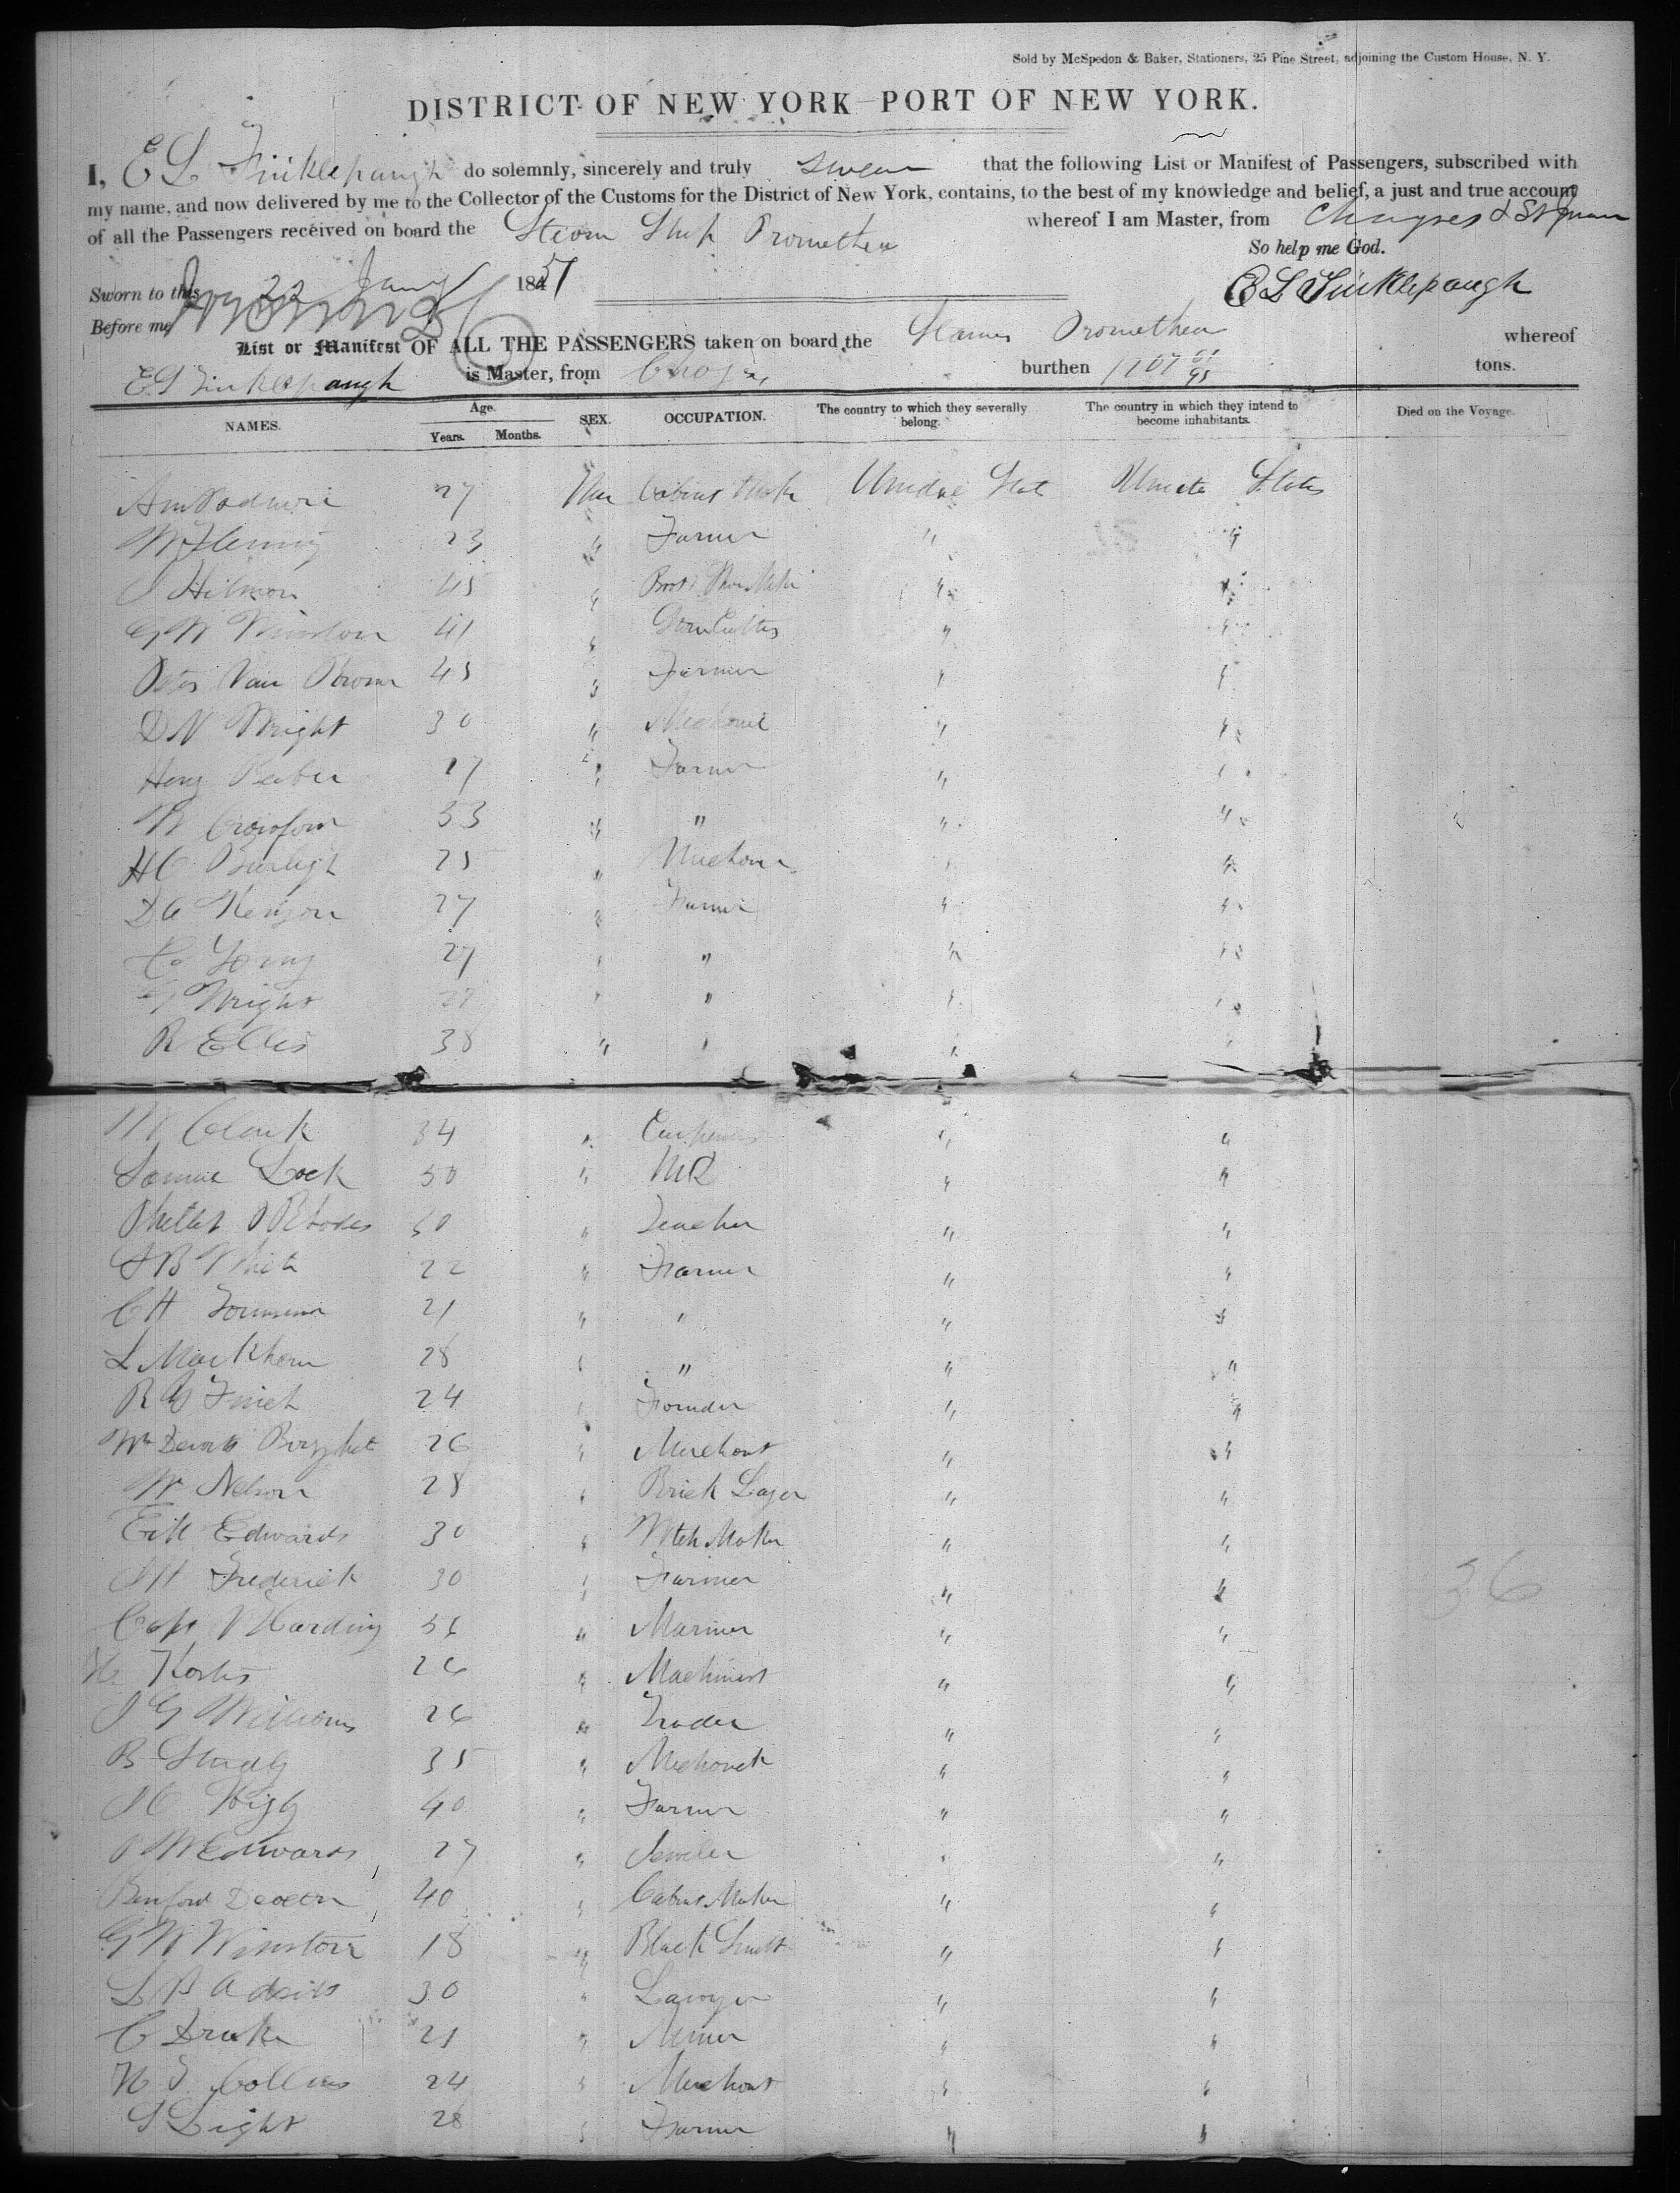 Sold by McSpedon & Baker, Stationers, 25 Pine Street, adjoining the Custom House, N. Y.
DISTRICT OF NEW YORK—PORT OF NEW YORK.
I, E L Tinklepaugh do solemnly, sincerely and truly swear that the following List or Manifest of Passengers, subscribed with
my name, and now delivered by me to the Collector of the Customs for the District of New York, contains, to the best of my knowledge and belief, a just and true account
of all the Passengers received on board the Steam Ship Promethea whereof I am Master, from Chagres & St Juan
So help me God.
Sworn to this 22 Jany 1851 E L Tinklepaugh
Before me
List or Manifest OF ALL THE PASSENGERS taken on board the Steamer Promethea whereof
E L Tinklepaugh is Master, from Chagres burthen 1207 tons.
NAMES. Age. Years. Months. SEX. OCCUPATION. The country to which they severally belong. The country in which they intend to become inhabitants. Died on the Voyage.
27 Cabinet Make United Stat United States
W Fleming 23 " Farmer " "
J Hilmon 45 " Boot & Shoe Maker " "
G W Winston 41 " " "
Peter Van 45 " Farmer " "
D N Wright 30 " Mechanic " "
27 " Farmer " "
W 33 " " " "
H C Burleigh 25 " " "
D C Kenyon 27 " Farmer " "
Young 27 " " " "
G Wright " " " "
R Ellis 38 " " " "
W Clark 34 " Carpenter " "
Samue Lock 50 " MD " "
Rhodes 30 " Teacher " "
S B White 22 " Farmer " "
C H 21 " " " "
L Markham 28 " " " "
R G Finch 24 " Founder " "
26 " Merchant " "
W Nelson 28 " Brick Layer " "
Edwards 30 " Wtch Maker " "
J H Frederick 30 " Farmer " "
Capt J Harding " Mariner " "
26 " Machinist " "
J G Williams 26 " Trader " "
B Study 35 " Mechanick " "
J C 40 " Farmer " "
J M Edwards 27 " Jeweler " "
40 " Cabinet Maker " "
G W Winston 18 " Black Smith " "
L B 30 " Lawyer " "
C Drake 21 " Miner " "
Collins 24 " Merchant " "
S Light 28 " Farmer " "
36